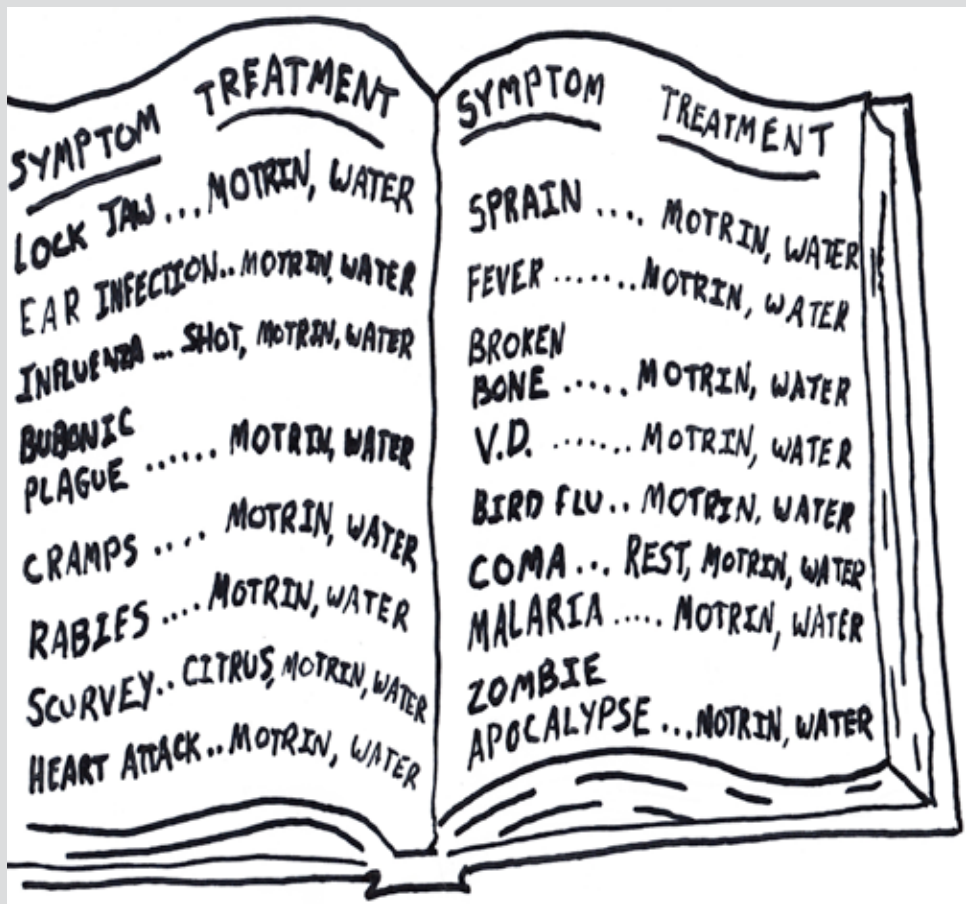 SYMPTOM TREATMENT
LOCK JAW ... MOTRIN, WATER
EAR INFECTION.. MOTRIN, WATER
INFLUENZA ... SHOT, MOTRIN, WATER
BUBONIC
PLAGUE ...... MOTRIN, WATER
CRAMPS .... MOTRIN, WATER
RABIES .... MOTRIN, WATER
SCURVEY.. CITRUS, MOTRIN, WATER
HEART ATTACK.. MOTRIN, WATER
SYMPTOM TREATMENT
SPRAIN .... MOTRIN, WATER
FEVER ....... MOTRIN, WATER
BROKEN
BONE ..... MOTRIN, WATER
V.D. ....... MOTRIN, WATER
BIRD FLU.. MOTRIN, WATER
COMA... REST, MOTRIN, WATER
MALARIA ..... MOTRIN, WATER
ZOMBIE
APOCALYPSE ... MOTRIN, WATER